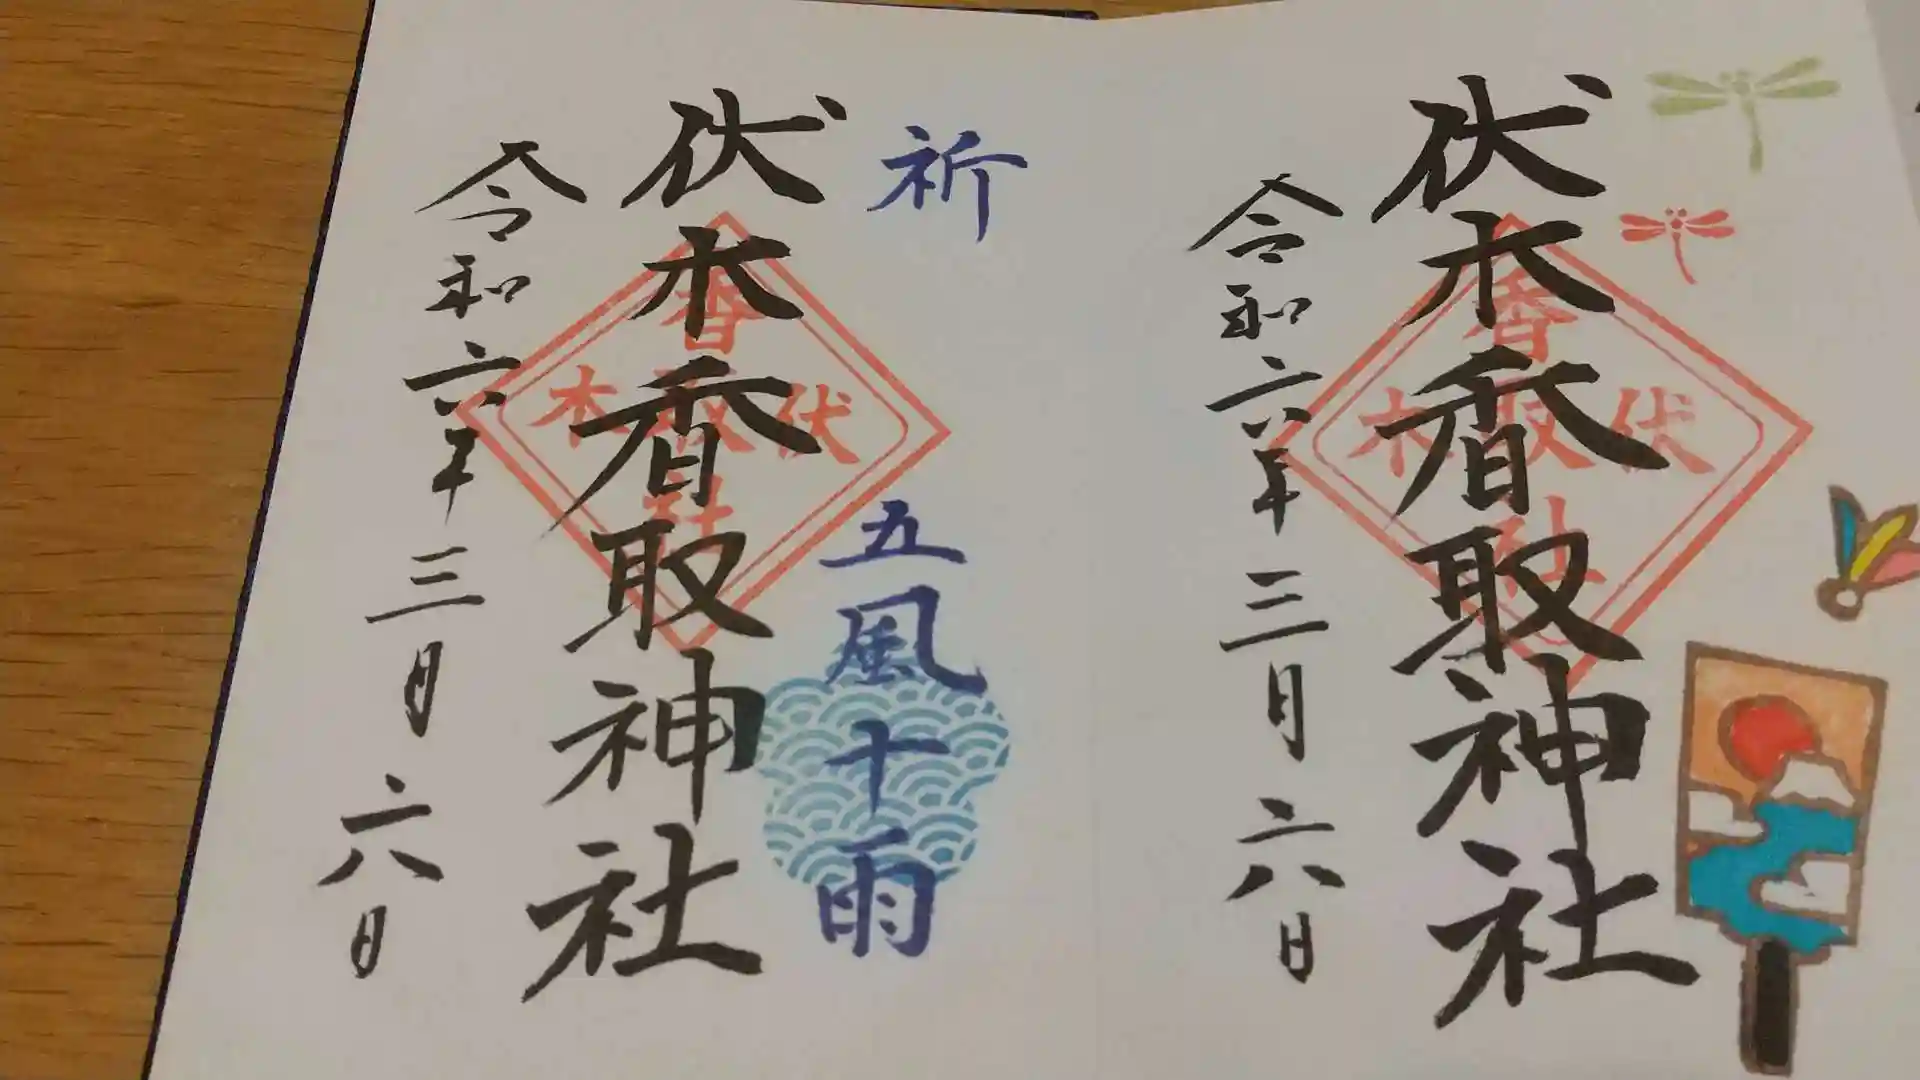 伏木香取神社
令和六年三月六日
伏木香取社
祈
五風十雨
伏木香取神社
令和六年三月六日
伏木香取社